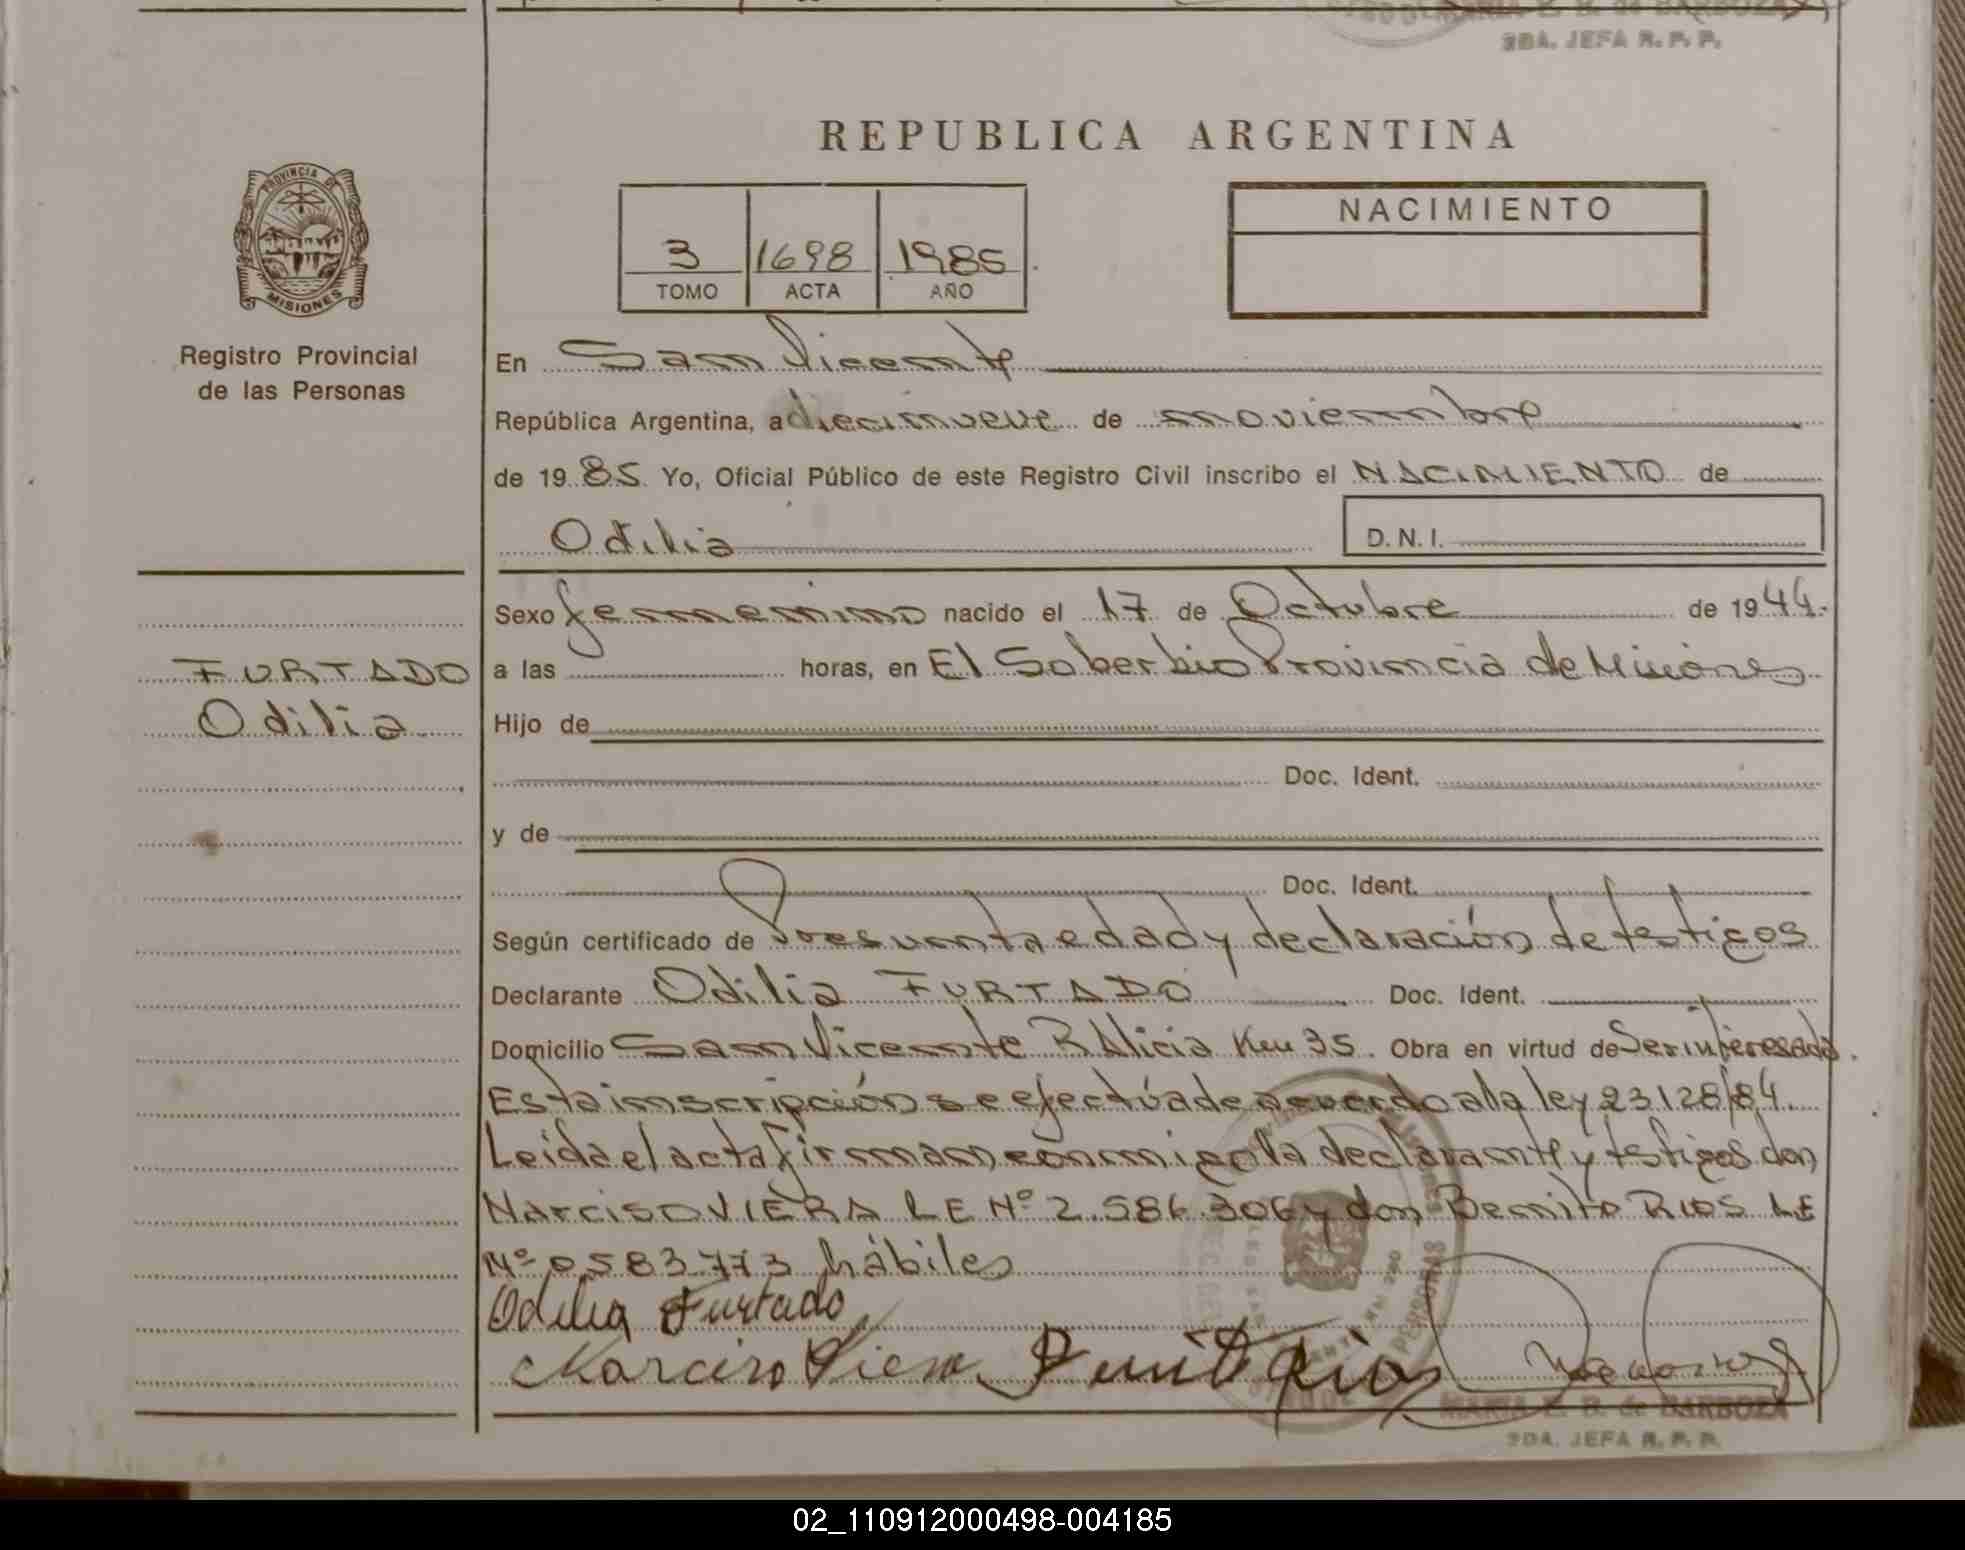 MARIA E. B. de BARBOZA
2DA. JEFA R. P. P.
REPUBLICA ARGENTINA
PROVINCIA DE
MISIONES
Registro Provincial
de las Personas
3 1698 1985
TOMO ACTA AÑO
NACIMIENTO
En San Vicente
República Argentina, a diecinueve de noviembre
de 1985 Yo, Oficial Público de este Registro Civil inscribo el NACIMIENTO de
Odilia
D. N. I.
Sexo femenino nacido el 17 de Octubre de 1944.
FURTADO
Odilia
a las horas, en El Soberbio Provincia de Misiones
Hijo de
Doc. Ident.
y de
Doc. Ident.
Según certificado de Presunta edad y declaración de testigos
Declarante Odilia FURTADO Doc. Ident.
Domicilio San Vicente R Alicia Km 35. Obra en virtud de Ser interesada.
Esta inscripción se efectúa de acuerdo a la ley 23128/84.
Leida el acta firman conmigo la declarante y testigos don
Narciso VIERA L E Nº 2.586.306 y don Benito RIOS LE
Nº 0583773 hábiles
Odilia Furtado
Narciso Viera Benito Rios
MARIA E. B. de BARBOZA
2DA. JEFA R. P. P.
02_110912000498-004185